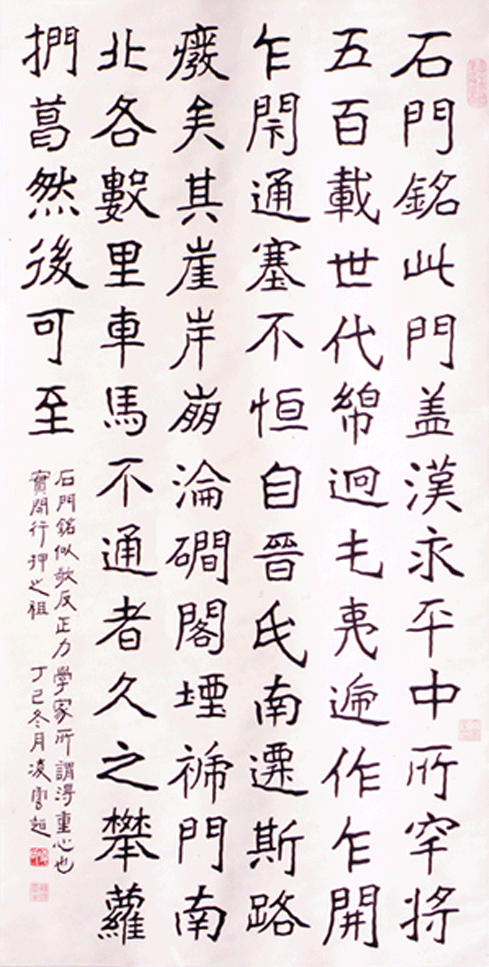 石門銘此門盖漢永平中所穿将
五百載世代綿迴屯夷遞作乍開
乍閇通塞不恒自晉氏南遷斯路
癈矣其崖岸崩淪磵閣堙褫門南
北各數里車馬不通者久之攀蘿
捫葛然後可至
石門銘似欹反正力學家所謂得重心也
實開行押之祖 丁巳冬月凌雲超